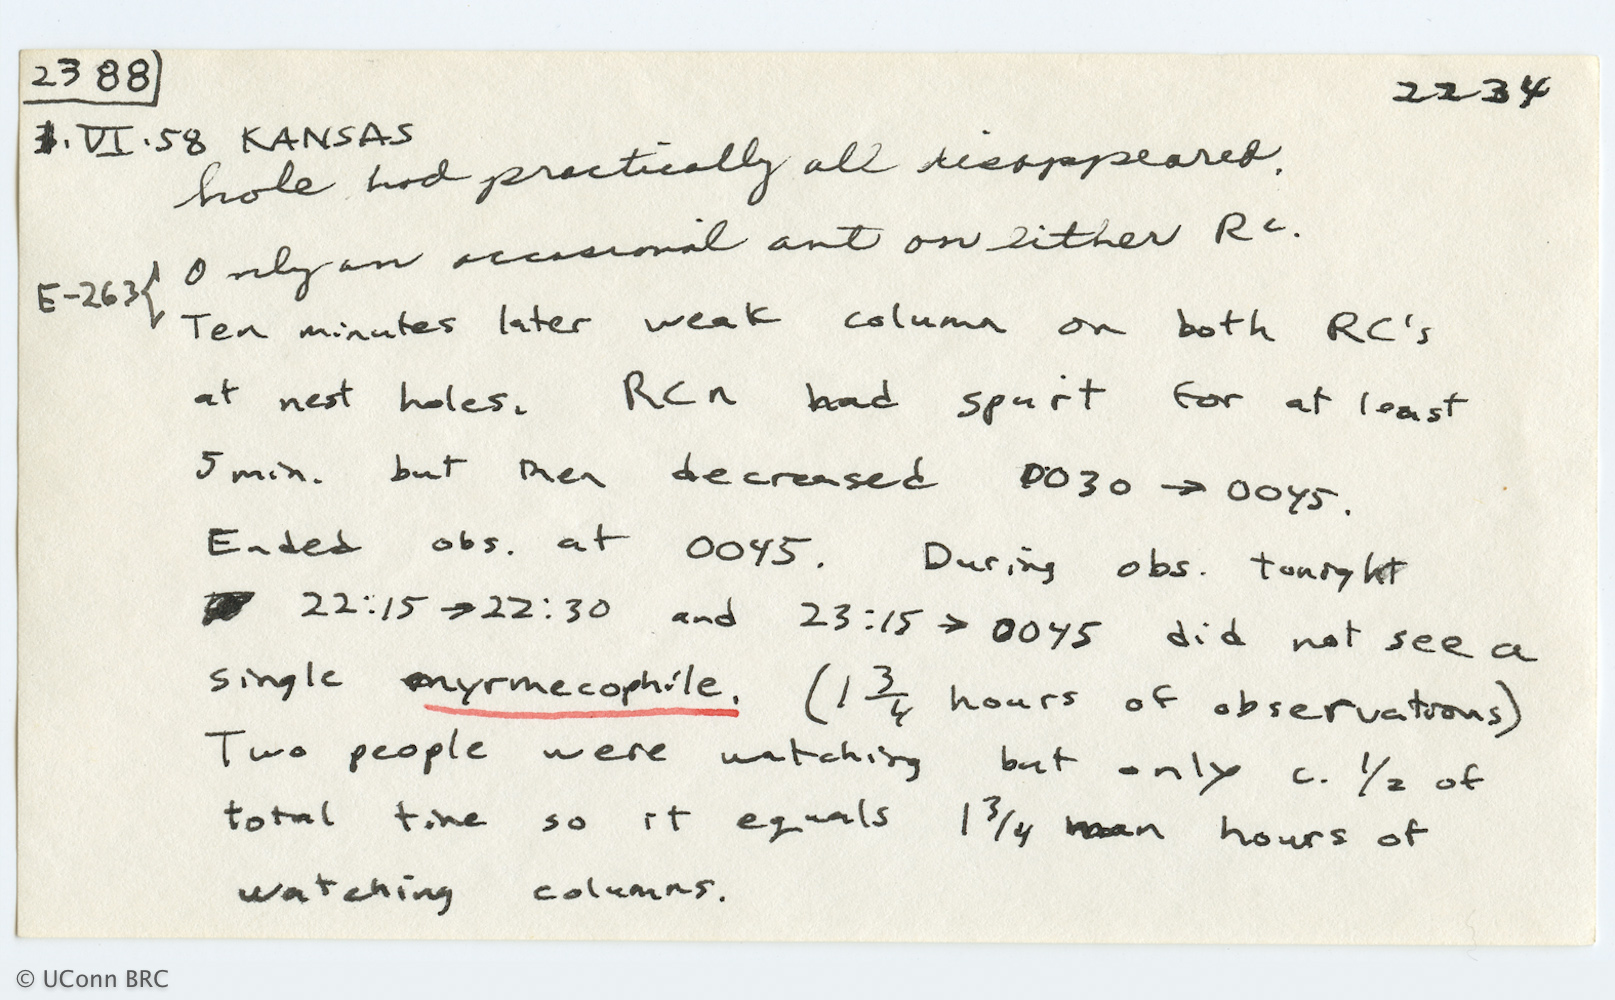 2388
2234
1.VI.58 KANSAS
hole had practically all disappeared.
Only an occasional ant on either RC.
E-263{
Ten minutes later weak column on both RC's
at nest holes. RCn had spurt for at least
5 min. but then decreased 0030 → 0045.
Ended obs. at 0045. During obs. tonight
22:15 → 22:30 and 23:15 → 0045 did not see a
single myrmecophile. (1 3/4 hours of observations)
Two people were watching but only c. 1/2 of
total time so it equals 1 3/4 man hours of
watching columns.
© UConn BRC